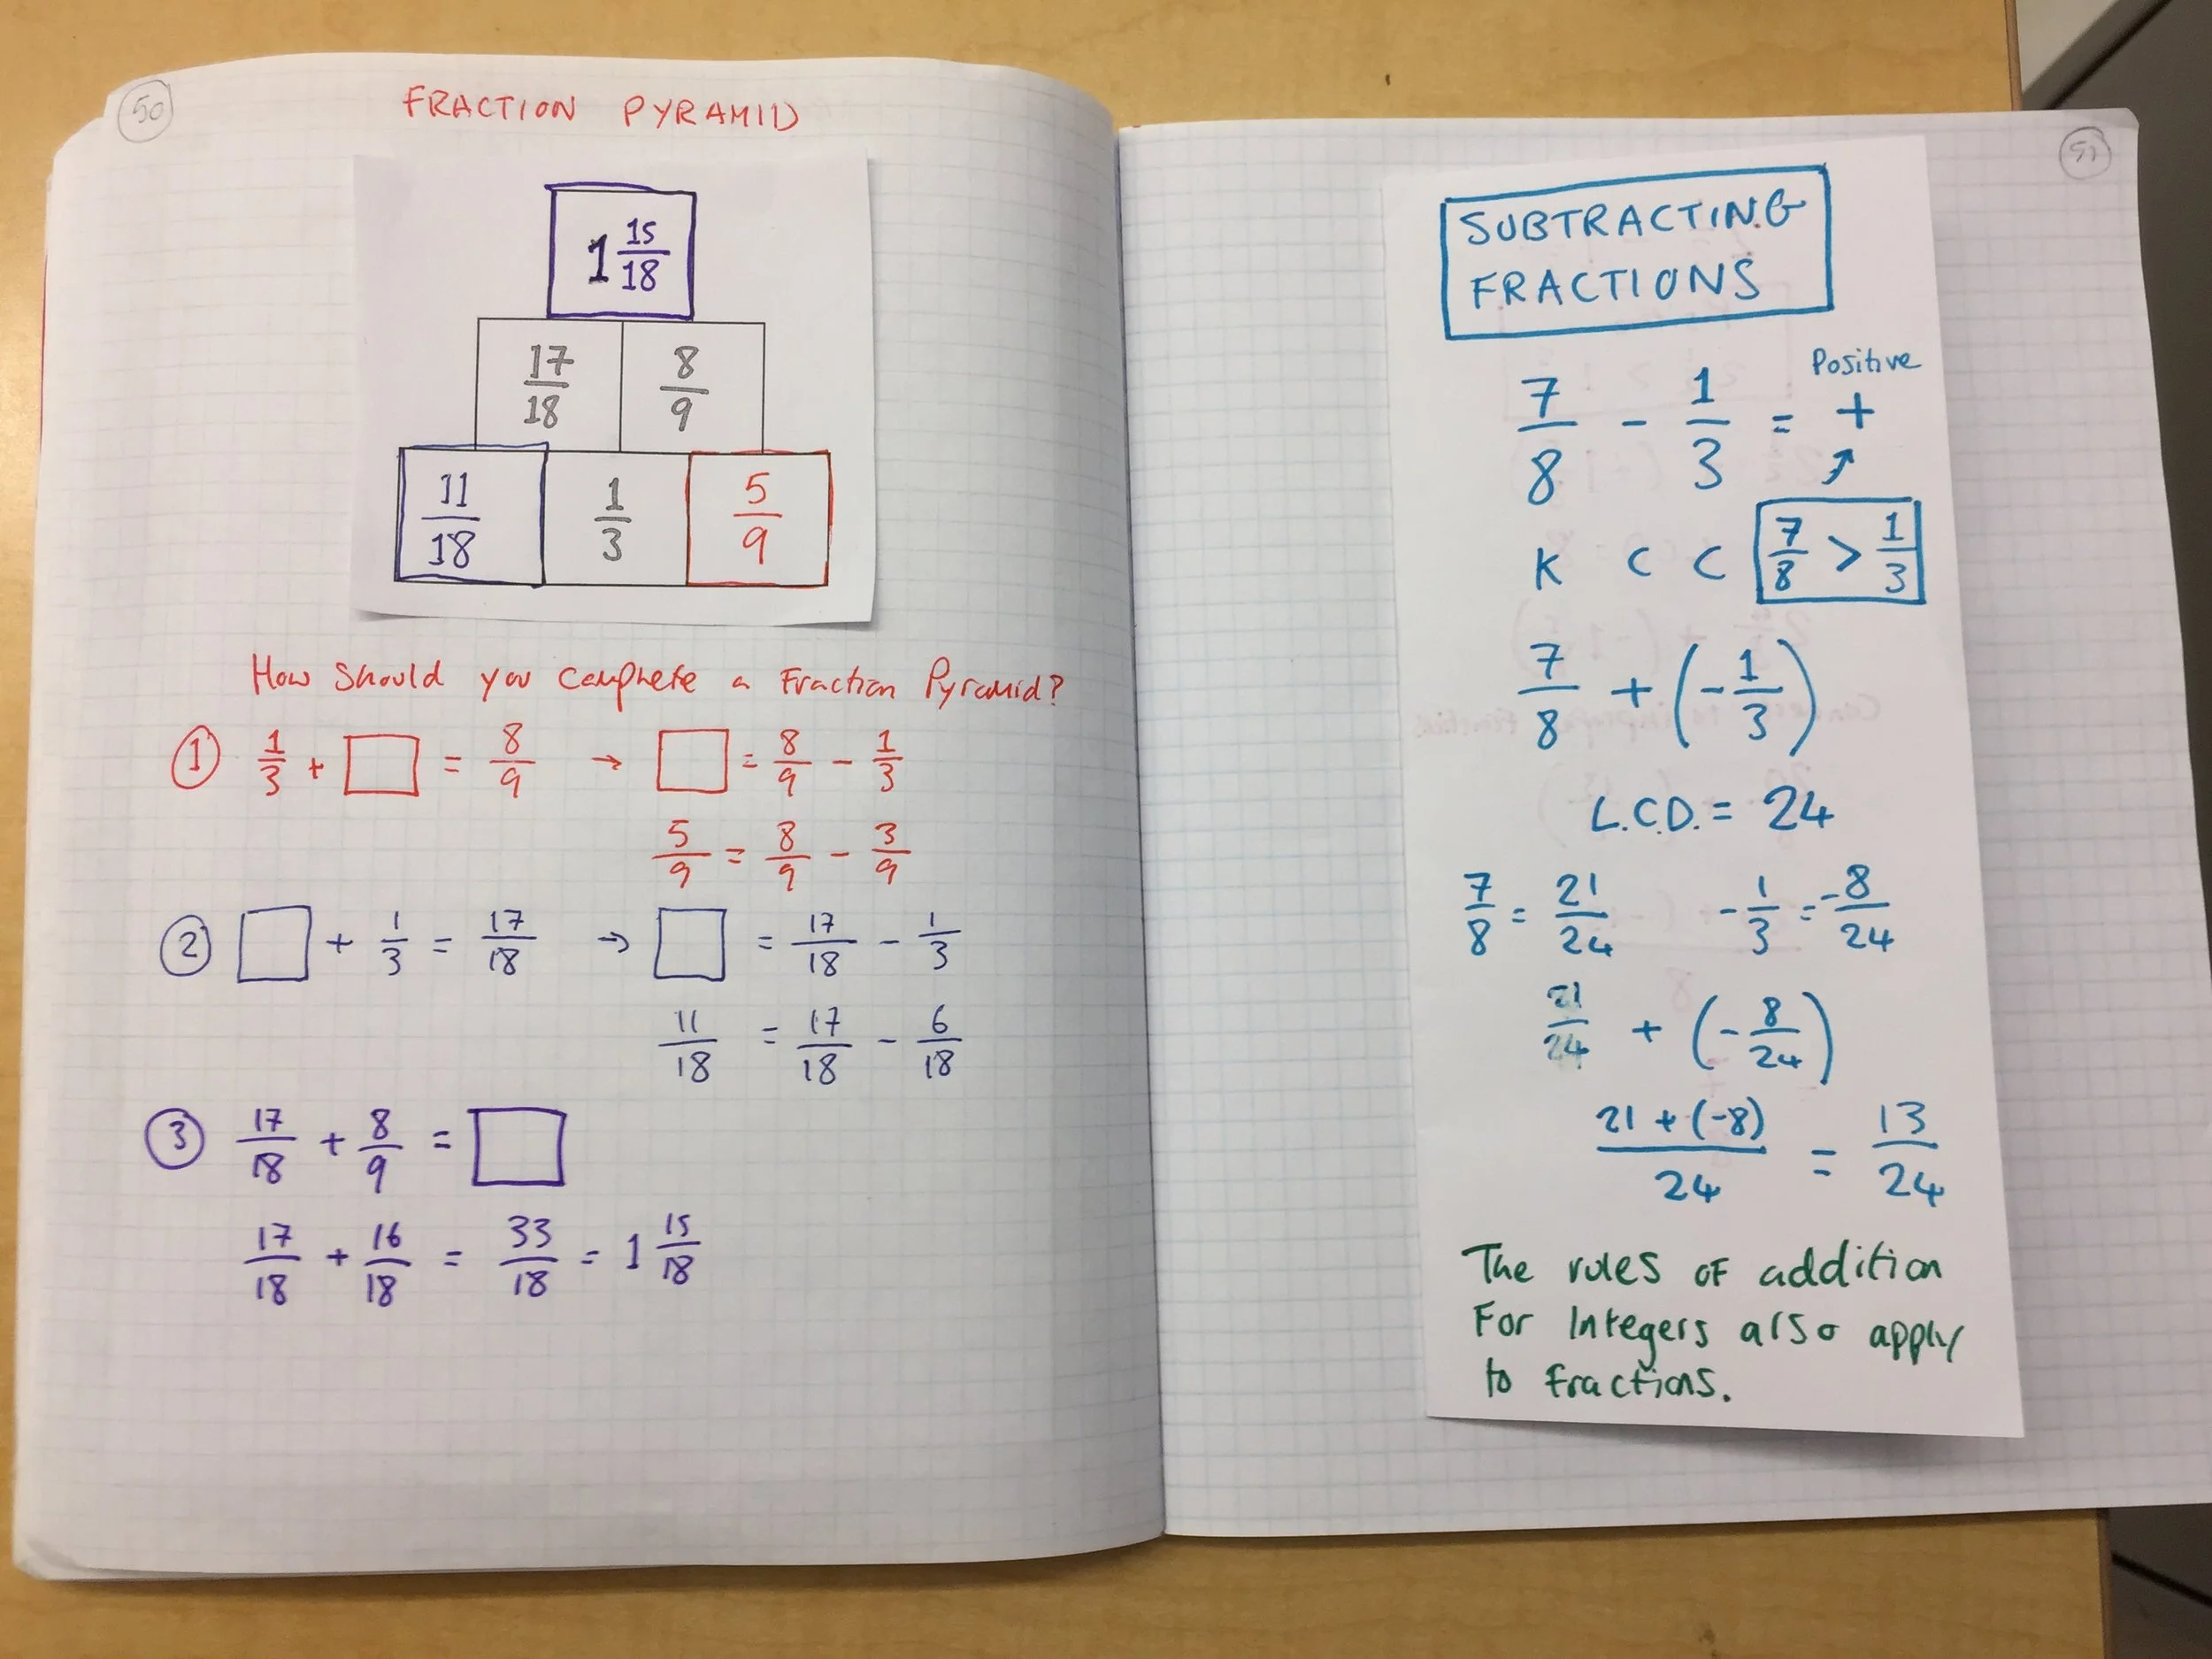 50
FRACTION PYRAMID
1 15/18
17/18 8/9
11/18 1/3 5/9
How Should you Complete a Fraction Pyramid?
① 1/3 + □ = 8/9 → □ = 8/9 - 1/3
5/9 = 8/9 - 3/9
② □ + 1/3 = 17/18 → □ = 17/18 - 1/3
11/18 = 17/18 - 6/18
③ 17/18 + 8/9 = □
17/18 + 16/18 = 33/18 = 1 15/18
51
SUBTRACTING
FRACTIONS
Positive
7/8 - 1/3 = +
↗
K C C 7/8 > 1/3
7/8 + (-1/3)
L.C.D. = 24
7/8 = 21/24 -1/3 = -8/24
21/24 + (-8/24)
21 + (-8)/24 = 13/24
The rules of addition
For Integers also apply
to fractions.